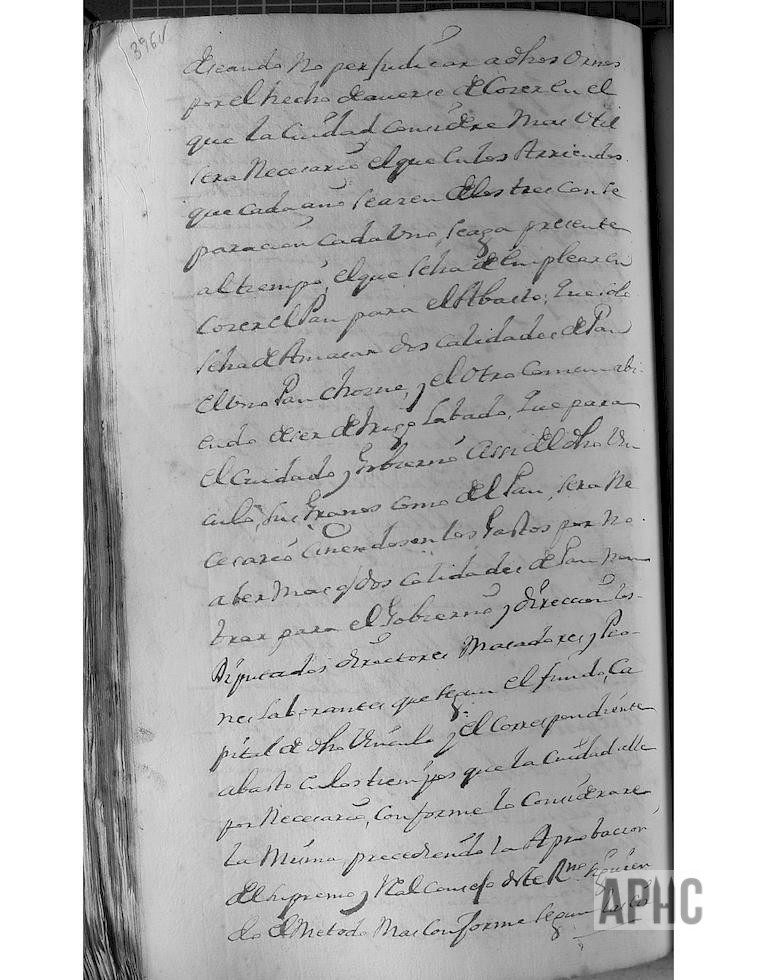 396v
deseando No perjudicar a dhos Ornos
por el hecho de averse de Cozer en el
que la Ciudad considere Mas Util
sera Necesario el que en los Arriendos
que cada año se aren de los tres con se
paracion cada Uno, se aga presente
al tiempo, el que se ha de emplear en
Cozer el Pan para el Abasto; Que solo
se ha de Amasar dos calidades de Pan
el Uno Pan Chorne, y el Otro Comun abi
endo de ser de trigo labado, Que para
el Cuidado y Gobierno assi del dho Vin
culo, sus Granos como del Pan, sera Ne
cesario Ciñendosen los Gastos por No
aber Mas q dos calidades de Pan Nom
brar para el Gobierno y direccion los
Diputados directores Masadores y Peo
nes laborantes que segun el fundo, Ca
pital de dho Vinculo y el Correspondiente
abasto en los tiempos que la Ciudad
por Necesario, Conforme lo Considerare
la Misma precediendo la Aprobacion
del Supremo y Real Consejo de este Rno
do el Metodo Mas Conforme segun
APHC